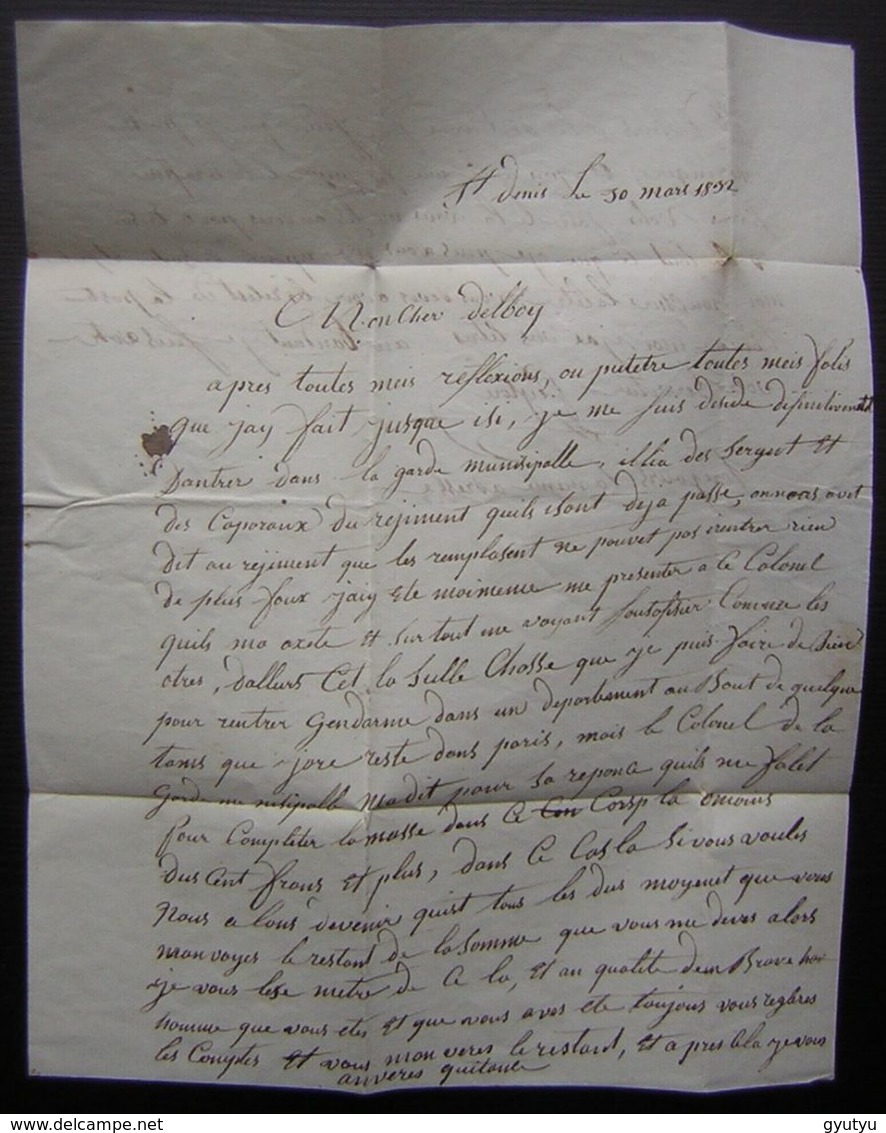 St denis le 30 mars 1832
Mon Cher delboy
apres toutes meis reflexions, ou putetre toutes meis folis
que jay fait jusque isi, je me suis deside difinitivment
Dantrer dans la garde munisipalle, illia des Sergent Et
des Caporaux du rejiment quils isont deja passe, onnous avet
dit au rejiment que les remplasent ne pouvet pas irentrer rien
de plus faux jaiy Ete moimeme me presenter a le Colonel
quils ma axete Et sur tout me voyant Sousofisier Comme les
otres, dallurs Cet la Sulle Chosse que je puis faire de Bien
pour rentrer Gendarme dans un departement au Bout de quelque
tams que jore reste dans paris, mais le Colonel de la
Garde munisipalle madit pour Sa reponce quils me falet
Pour Completer la masse dans Ce Corsp la omoins
dus Cent frans Et plus, dans Ce Cas la Si vous voules
Nous a lons devenir quist tous les dus moyenet que vous
manvoyes le restant de la Somme que vous me deves alors
je vous lese metre de Ce la, Et au qualite deun Brave hom
homme que vous etes Et que vous aves ete toujours vous regleres
les Comptes Et vous manveres le restant, Et apres Cela je vous
anveres quitance
gyutyu